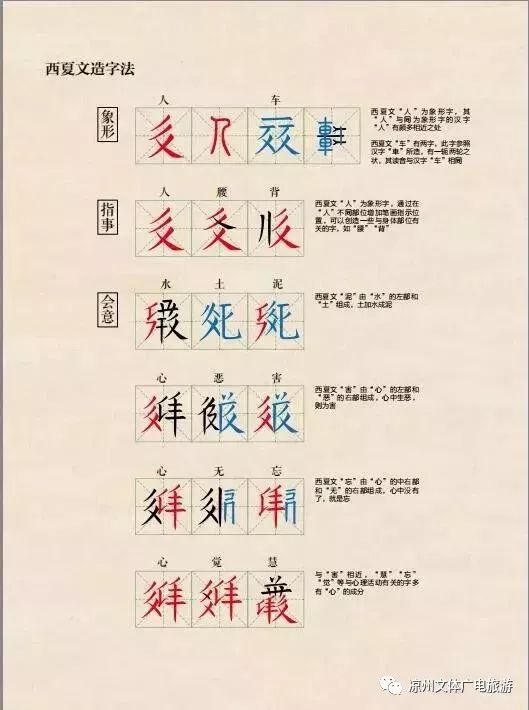 西夏文造字法
象形
人 车
西夏文“人”为象形字，其
“人”与同为象形字的汉字
“人”有颇多相近之处
西夏文“车”有两字，此字参照
汉字“車”所造，有一轭两轮之
状，其读音与汉字“车”相同
指事
人 腰 背
西夏文“人”为象形字，通过在
“人”不同部位增加笔画指示位
置，可以创造一些与身体部位有
关的字，如“腰”“背”
会意
水 土 泥
西夏文“泥”由“水”的左部和
“土”组成，土加水成泥
心 恶 害
西夏文“害”由“心”的左部和
“恶”的右部组成，心中生恶，
则为害
心 无 忘
西夏文“忘”由“心”的中右部
和“无”的右部组成，心中没有
了，就是忘
心 觉 慧
与“害”相近，“慧”“忘”
“觉”等与心理活动有关的字多
有“心”的成分
凉州文体广电旅游